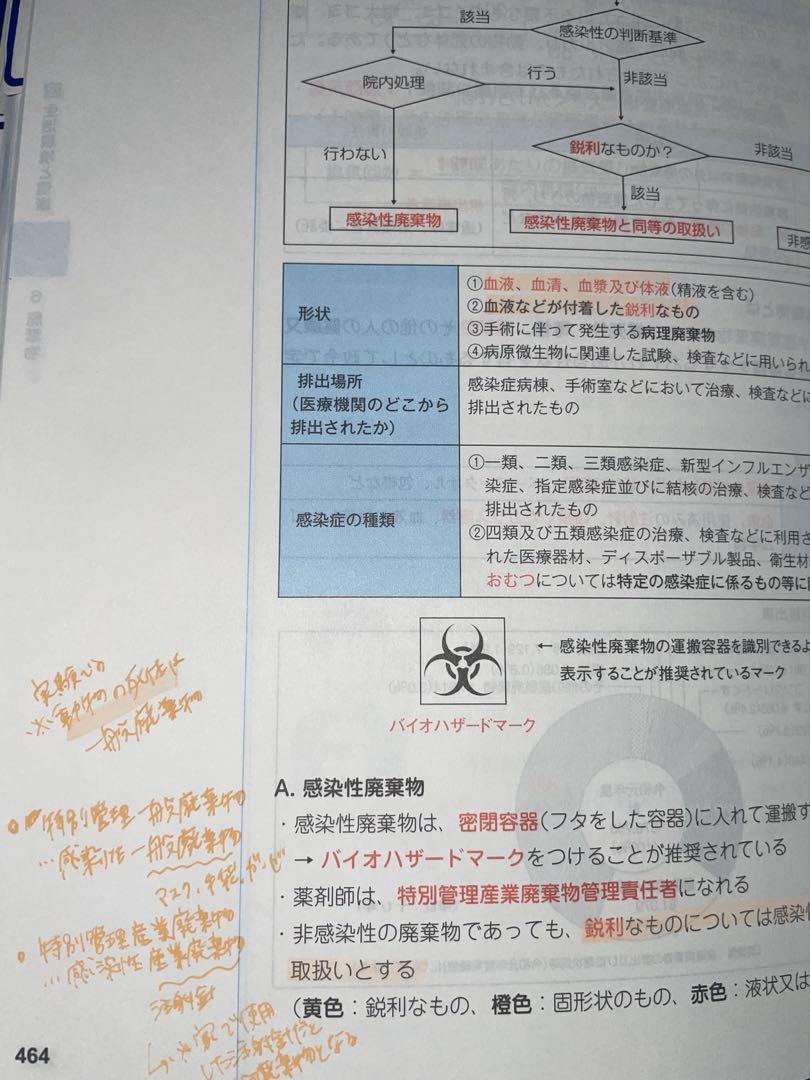 該当
感染性の判断基準
院内処理
行う
非該当
行わない
鋭利なものか？
非該当
該当
感染性廃棄物
感染性廃棄物と同等の取扱い
形状
①血液、血清、血漿及び体液(精液を含む)
②血液などが付着した鋭利なもの
③手術に伴って発生する病理廃棄物
④病原微生物に関連した試験、検査などに用いられ
排出場所
（医療機関のどこから
排出されたか）
感染症病棟、手術室などにおいて治療、検査などに
排出されたもの
感染症の種類
①一類、二類、三類感染症、新型インフルエンザ
染症、指定感染症並びに結核の治療、検査など
排出されたもの
②四類及び五類感染症の治療、検査などに利用さ
れた医療器材、ディスポーザブル製品、衛生材
おむつについては特定の感染症に係るもの等に
← 感染性廃棄物の運搬容器を識別できるよ
表示することが推奨されているマーク
バイオハザードマーク
実験での
※動物の死体は
一般廃棄物
A. 感染性廃棄物
・感染性廃棄物は、密閉容器(フタをした容器)に入れて運搬す
→ バイオハザードマークをつけることが推奨されている
・薬剤師は、特別管理産業廃棄物管理責任者になれる
・非感染性の廃棄物であっても、鋭利なものについては感染
取扱いとする
（黄色：鋭利なもの、橙色：固形状のもの、赤色：液状又は
特別管理一般廃棄物
…感染性一般廃棄物
マスク、手袋、ガーゼ
特別管理産業廃棄物
…感染性産業廃棄物
注射針
↳※家で使用
した注射針だと
廃棄物となる
464